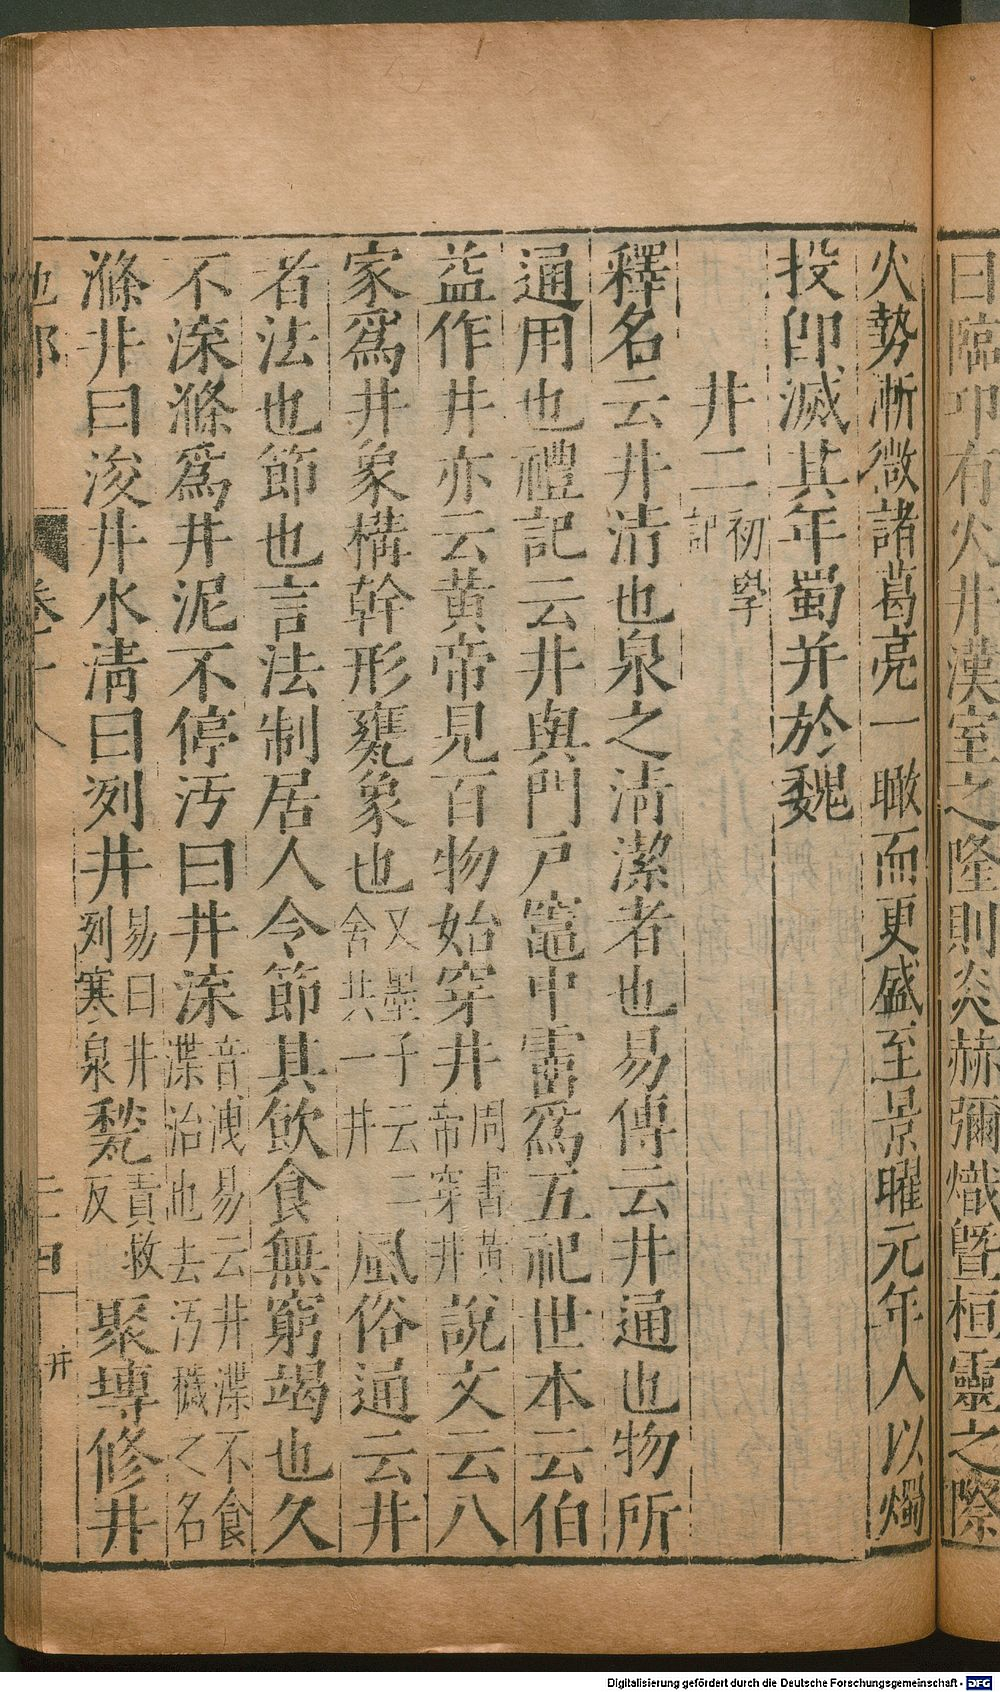 曰臨卭有火井漢室之隆則炎赫彌熾曁桓靈之際
火勢漸微諸葛亮一瞰而更盛至景曜元年人以燭
投卽滅其年蜀并於魏
井二初學記
釋名云井清也泉之清潔者也易傳云井通也物所
通用也禮記云井與門戸竈中霤爲五祀世本云伯
益作井亦云黄帝見百物始穿井周書黃帝穿井說文云八
家爲井象構幹形甕象也又墨子云二舍共一井風俗通云井
者法也節也言法制居人令節其飮食無窮竭也久
不渫滌爲井泥不停汚曰井渫音洩易云井渫不食渫治也去汚穢之名
滌井曰浚井水淸曰洌井易曰井冽寒泉甃責救反聚塼修井
地部 卷十八 二四 井
Digitalisierung gefördert durch die Deutsche Forschungsgemeinschaft - DFG